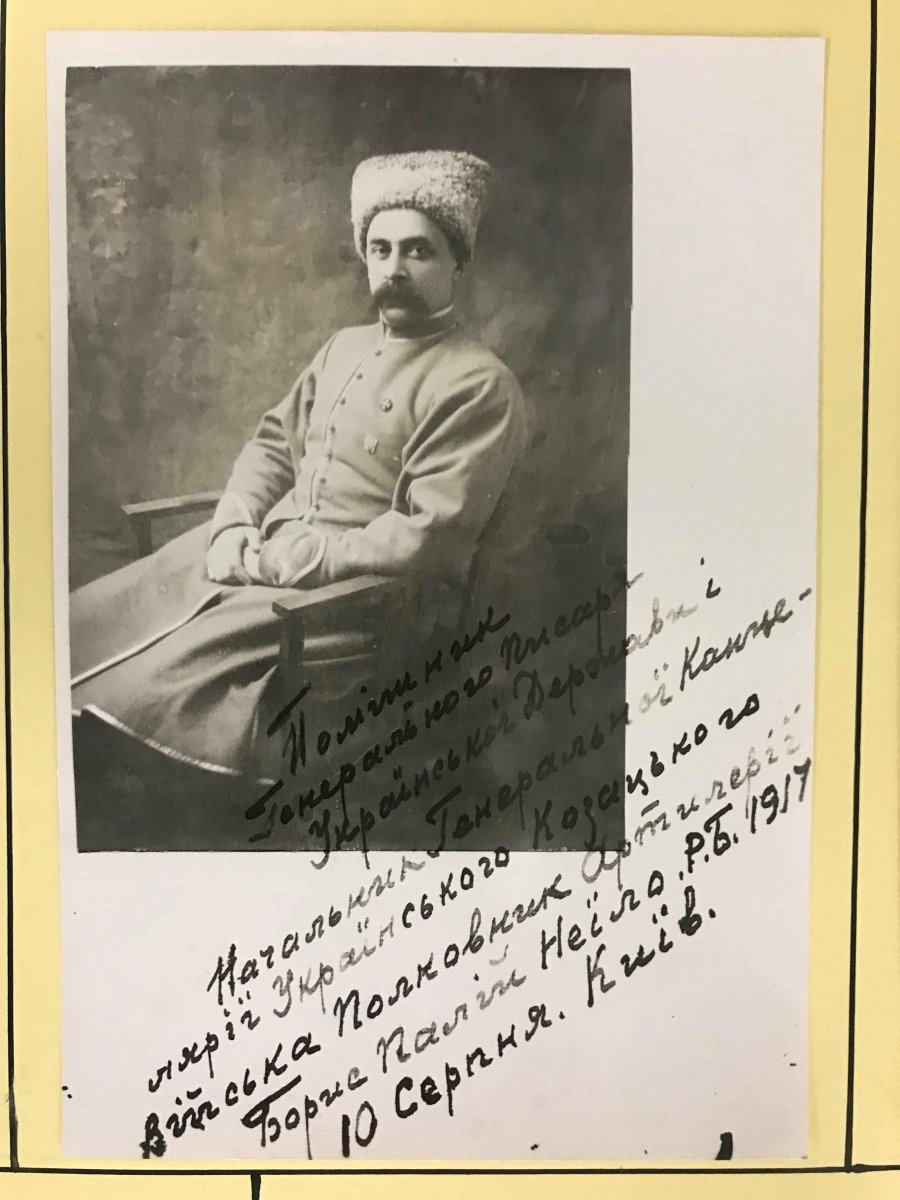 Помішник
Генерального Писаря
Української Держави і
Начальник Генеральної Канце-
лярії Українського Козацького
Війська Полковник Артилерії
Борис Палій Неїло. Р.Б. 1917
10 Серпня. Київ.